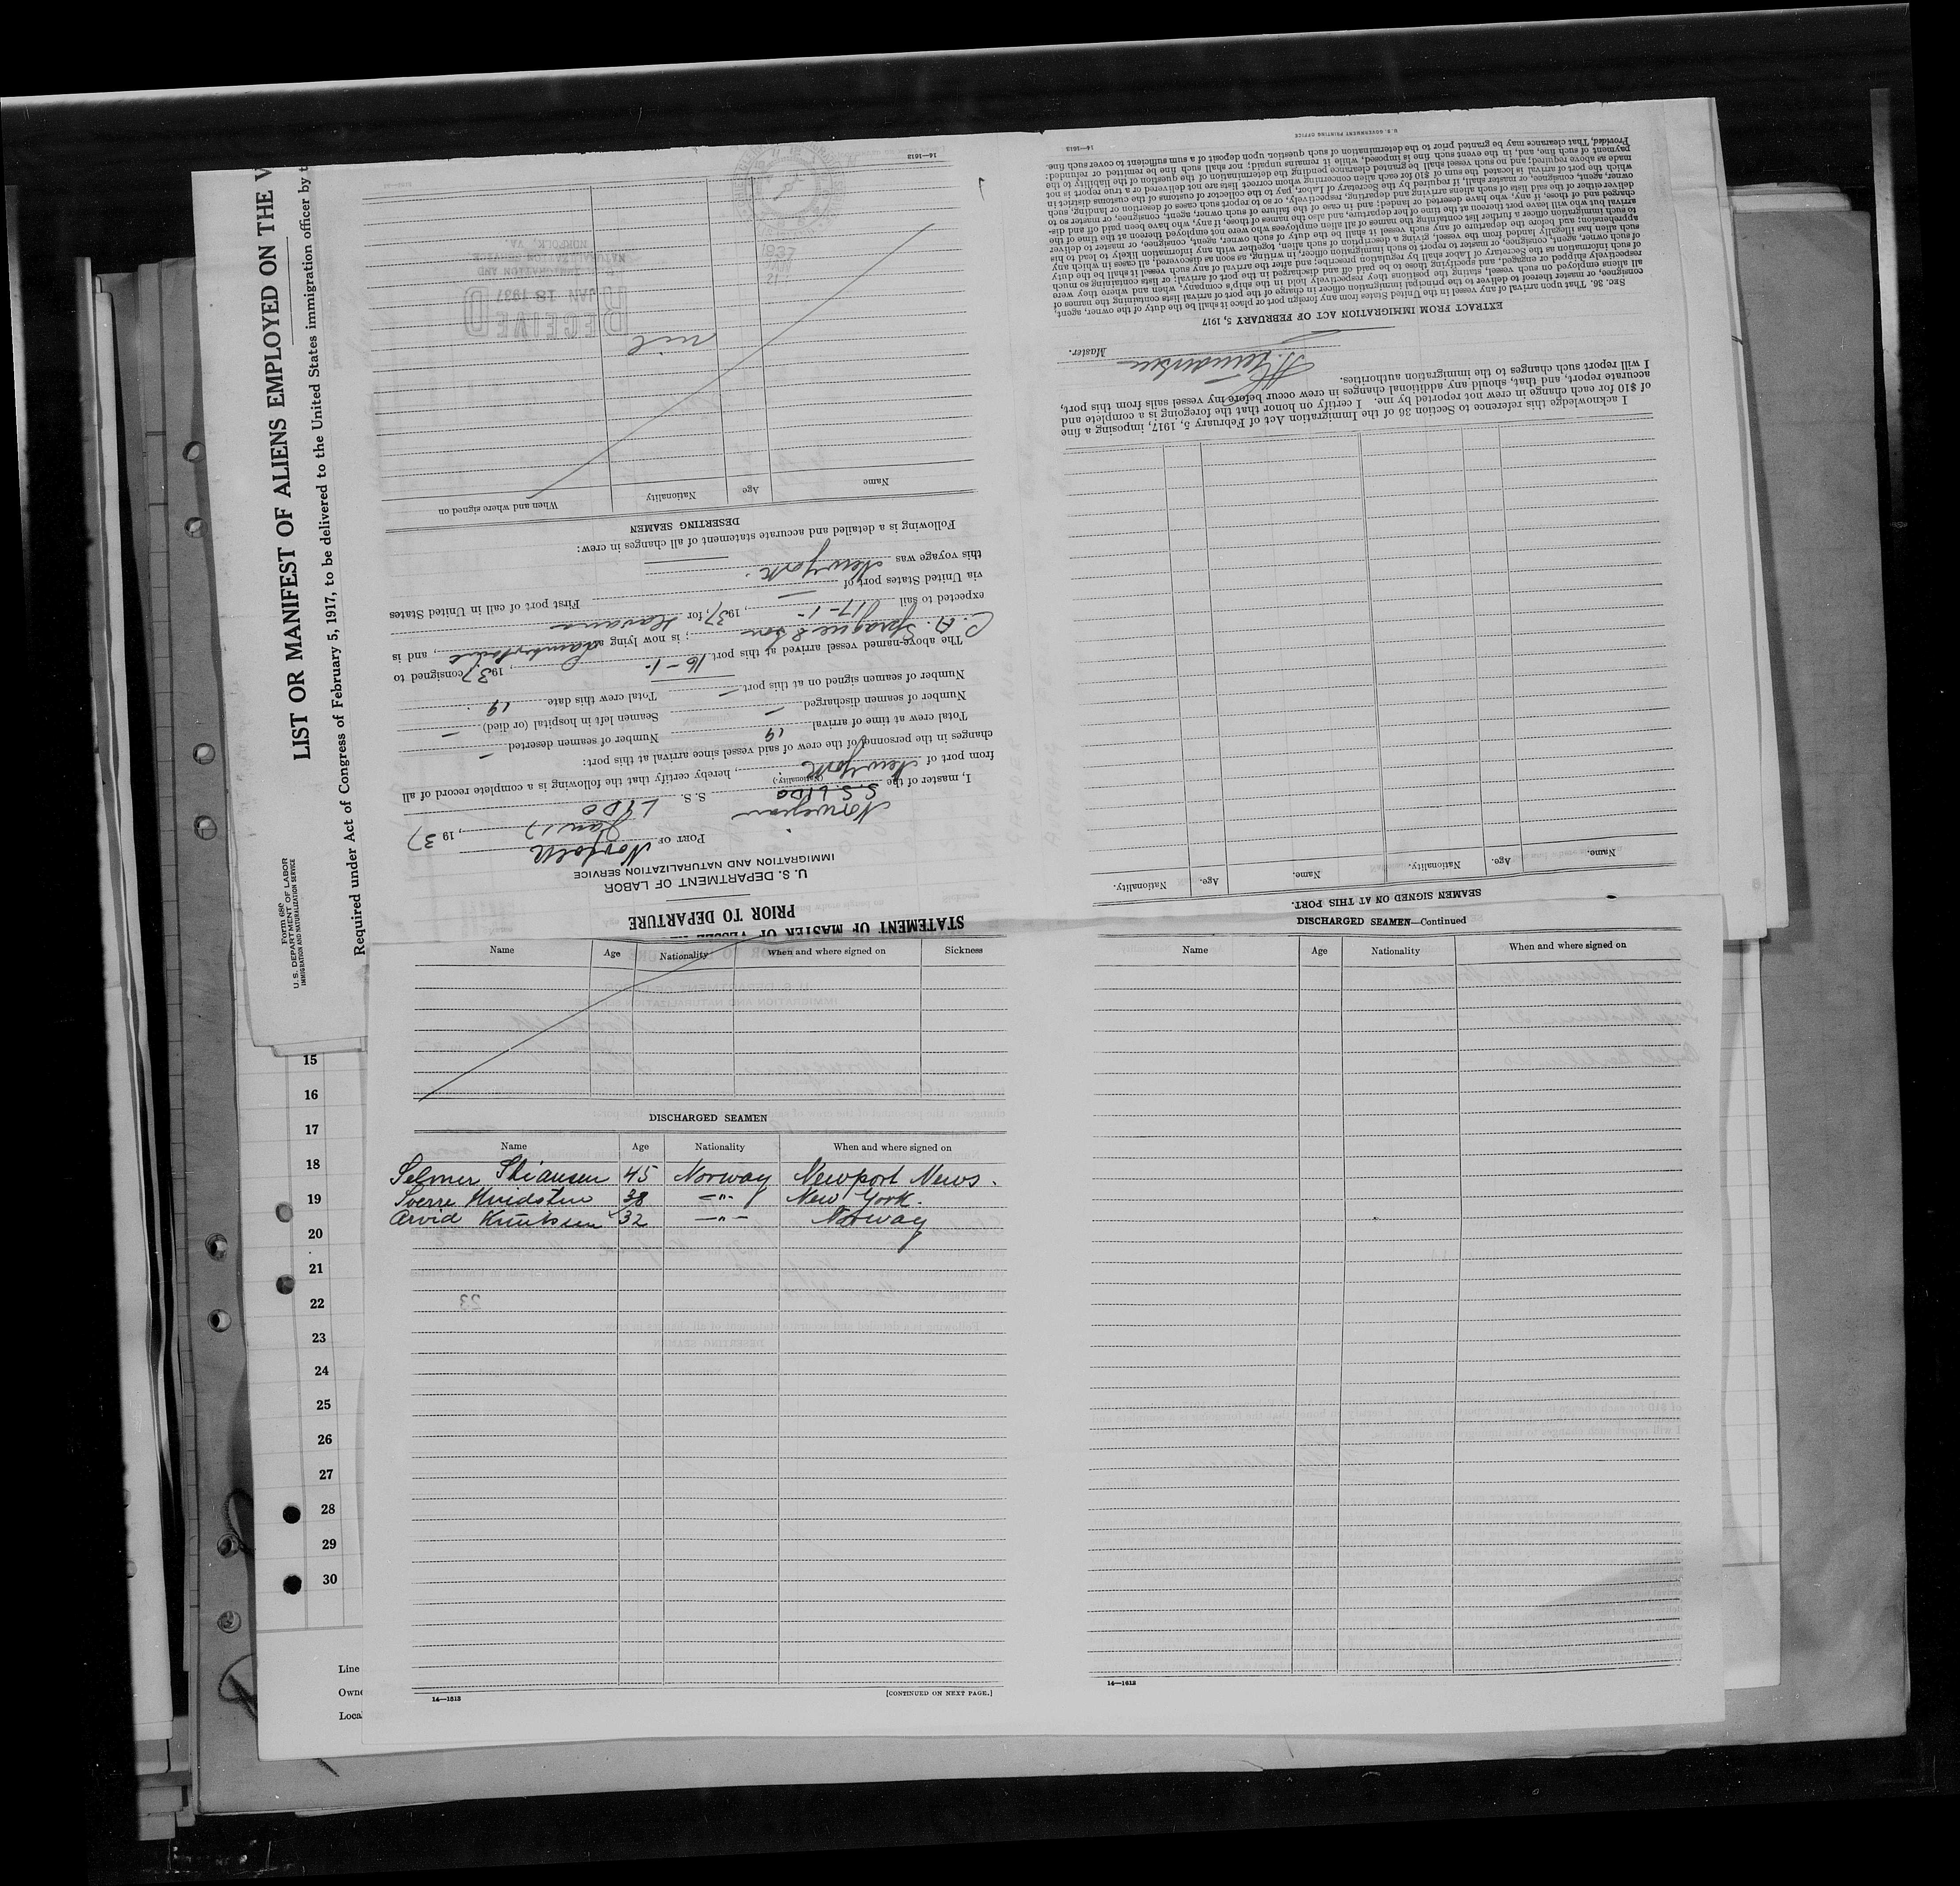 LIST OR MANIFEST OF ALIENS EMPLOYED ON THE V
Required under Act of Congress of February 5, 1917, to be delivered to the United States immigration officer by t
Form 680
U. S. DEPARTMENT OF LABOR
IMMIGRATION AND NATURALIZATION SERVICE
15
16
17
18
19
20
21
22
23
24
25
26
27
28
29
30
Line
Owne
Local
STATEMENT OF MASTER OF VESSEL
PRIOR TO DEPARTURE
U. S. DEPARTMENT OF LABOR
IMMIGRATION AND NATURALIZATION SERVICE
PORT OF Norfolk
Jan 17, 1937
I, master of the Norwegian S. S. LYDO
S.S. LYDO
(Nationality.)
from port of New York, hereby certify that the following is a complete record of all
changes in the personnel of the crew of said vessel since arrival at this port:
Total crew at time of arrival 19 Number of seamen deserted –
Number of seamen discharged – Seamen left in hospital (or died) –
Number of seamen signed on at this port – Total crew this date 19.
The above-named vessel arrived at this port 16-1-, 1937 consigned to
C. H. Sprague & Son; is now lying at Lamberts Point, and is
expected to sail 17-1-, 1937, for Havana
via United States port of — First port of call in United States
this voyage was New York.
Following is a detailed and accurate statement of all changes in crew:
DESERTING SEAMEN
Name Age Nationality When and where signed on
nil
RECEIVED
JAN 18 1937
IMMIGRATION AND
NATURALIZATION SERVICE
NORFOLK, VA.
1937
JAN
21
14—1613
SEAMEN SIGNED ON AT THIS PORT.
Name. Age. Nationality. Name. Age. Nationality.
I acknowledge this reference to Section 36 of the Immigration Act of February 5, 1917, imposing a fine
of $10 for each change in crew not reported by me. I certify on honor that the foregoing is a complete and
accurate report, and that, should any additional changes in crew occur before my vessel sails from this port,
I will report such changes to the immigration authorities.
Master.
EXTRACT FROM IMMIGRATION ACT OF FEBRUARY 5, 1917
SEC. 36. That upon arrival of any vessel in the United States from any foreign port or place it shall be the duty of the owner, agent,
consignee, or master thereof to deliver to the principal immigration officer in charge of the port of arrival lists containing the names of
all aliens employed on such vessel, stating the positions they respectively hold in the ship's company, when and where they were
respectively shipped or engaged, and specifying those to be paid off and discharged in the port of arrival; or lists containing so much
of such information as the Secretary of Labor shall by regulation prescribe; and after the arrival of any such vessel it shall be the duty
of such owner, agent, consignee, or master to report to such immigration officer, in writing, as soon as discovered, all cases in which any
such alien has illegally landed from the vessel, giving a description of such alien, together with any information likely to lead to his
apprehension; and before the departure of any such vessel it shall be the duty of such owner, agent, consignee, or master to deliver
to such immigration officer a further list containing the names of all alien employees who were not employed thereon at the time of the
arrival but who will leave port thereon at the time of her departure, and also the names of those, if any, who have been paid off and dis-
charged and of those, if any, who have deserted or landed; and in case of the failure of such owner, agent, consignee, or master so to
deliver either of the said lists of such aliens arriving and departing, respectively, or so to report such cases of desertion or landing, such
owner, agent, consignee, or master, shall, if required by the Secretary of Labor, pay to the collector of customs of the customs district in
which the port of arrival is located the sum of $10 for each alien concerning whom correct lists are not delivered or a true report is not
made as above required; and no such vessel shall be granted clearance pending the determination of the question of the liability to the
payment of such fine, and, in the event such fine is imposed, while it remains unpaid; nor shall such fine be remitted or refunded:
Provided, That clearance may be granted prior to the determination of such question upon deposit of a sum sufficient to cover such fine.
14—1613
U. S. GOVERNMENT PRINTING OFFICE
Name Age Nationality When and where signed on Sickness
DISCHARGED SEAMEN
Name Age Nationality When and where signed on
Selmer Stiansen 45 Norway Newport News.
Sverre 38 —"— New York.
Arvid Knutsen 32 —"— Norway
23
14—1613
[CONTINUED ON NEXT PAGE.]
DISCHARGED SEAMEN—Continued
Name Age Nationality When and where signed on
14—1613